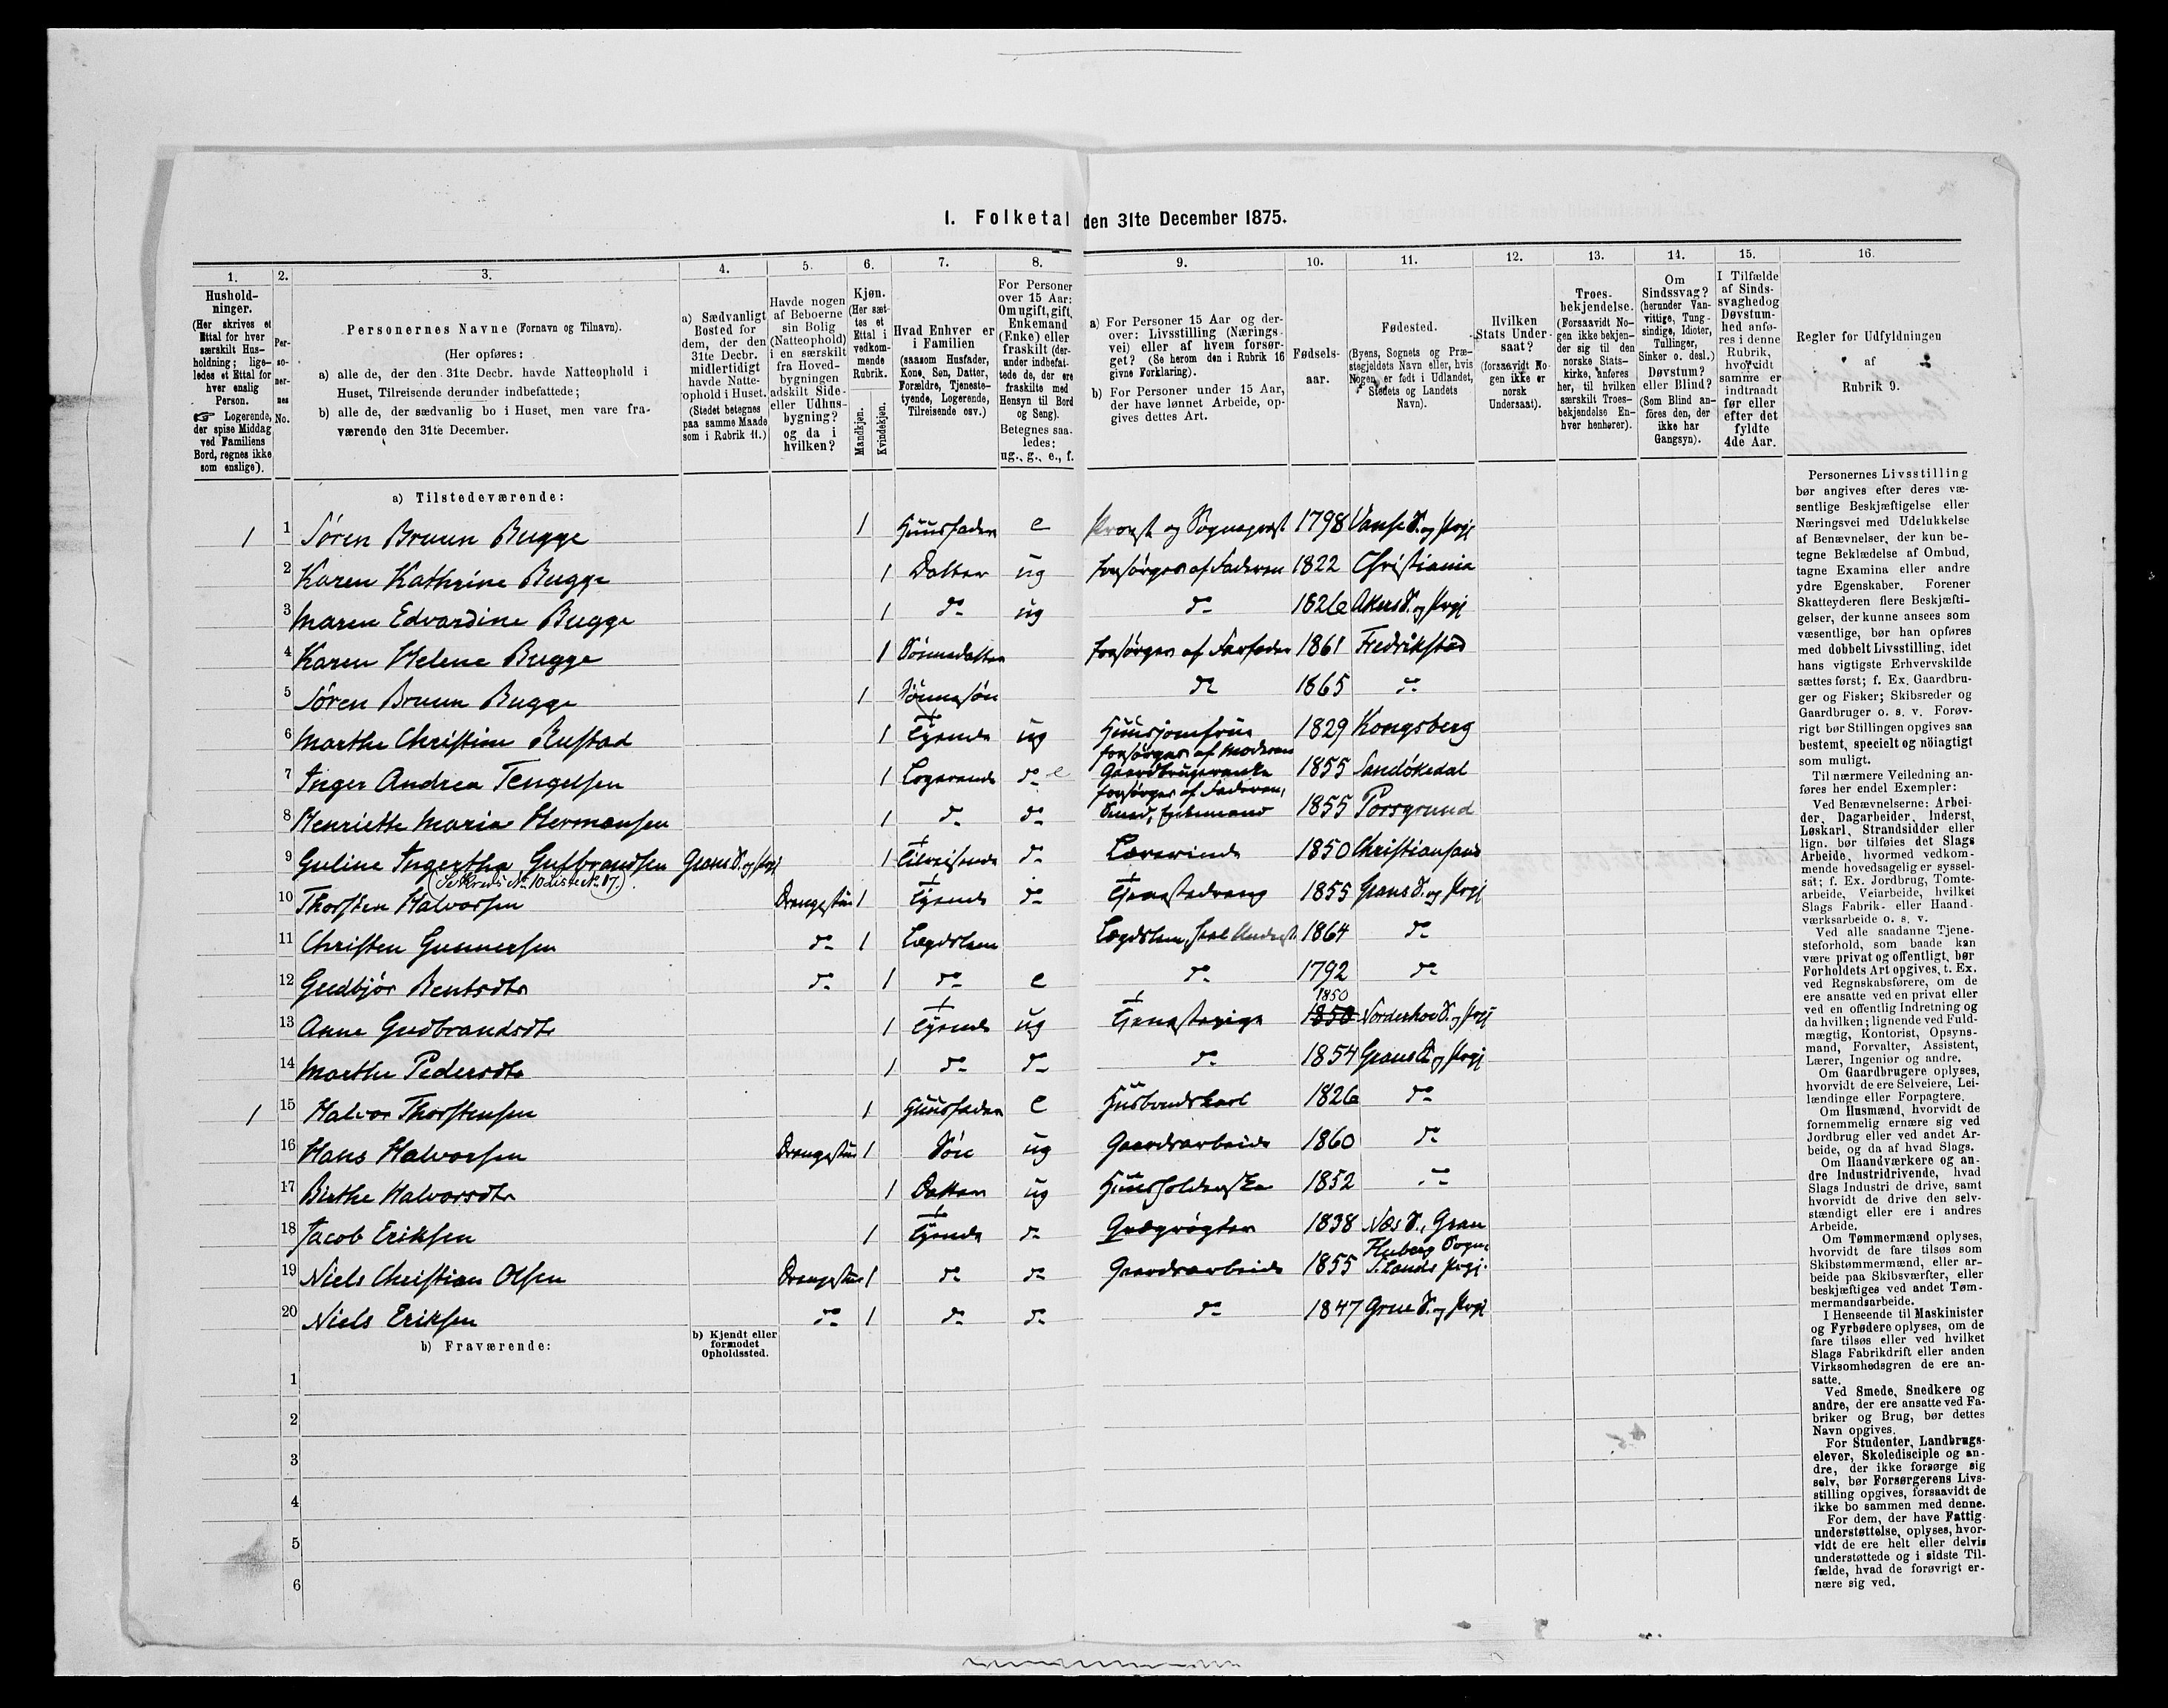 I. Folketal den 31te December 1875.
1. 2. 3. 4. 5. 6. 7. 8. 9. 10. 11. 12. 13. 14. 15. 16.
Hushold-
ninger.
(Her skrives et
Ettal for hver
særskilt Hus-
holdning; lige-
ledes et Ettal for
hver enslig
Person.
☞ Logerende,
der spise Middag
ved Familiens
Bord, regnes ikke
som enslige).
Per-
so-
ner-
nes
No.
Personernes Navne (Fornavn og Tilnavn).
(Her opføres:
a) alle de, der den 31te Decbr. havde Natteophold i
Huset, Tilreisende derunder indbefattede;
b) alle de, der sædvanlig bo i Huset, men vare fra-
værende den 31te December.
a) Sædvanligt
Bosted for
dem, der den
31te Decbr.
midlertidigt
havde Natte-
ophold i Huset.
(Stedet betegnes
paa samme Maade
som i Rubrik 11.)
Havde nogen
af Beboerne
sin Bolig
(Natteophold)
i en særskilt
fra Hoved-
bygningen
adskilt Side-
eller Udhus-
bygning?
og da i
hvilken?
Kjøn.
(Her sæt-
tes et
Ettal i
vedkom-
mende
Rubrik.
Mandkjøn.
Kvindekjøn.
Hvad Enhver er
i Familien
(saasom Husfader,
Kone, Søn, Datter,
Forældre, Tjeneste-
tyende, Logerende,
Tilreisende osv.)
For Personer
over 15 Aar:
Om ugift, gift,
Enkemand
(Enke) eller
fraskilt (der-
under indbefat-
tede de, der ere
fraskilte med
Hensyn til Bord
og Seng).
Betegnes saa-
ledes:
ug., g., e., f.
a) For Personer 15 Aar og der-
over: Livsstilling (Nærings-
vei) eller af hvem forsør-
get? (Se herom den i Rubrik 16
givne Forklaring).
b) For Personer under 15 Aar,
der have lønnet Arbeide, op-
gives dettes Art.
Fødsels-
aar.
Fødested.
(Byens, Sognets og Præ-
stegjeldets Navn eller, hvis
Nogen er født i Udlandet,
Stedets og Landets
Navn).
Hvilken
Stats Under-
saat?
(forsaavidt No-
gen ikke er
norsk
Undersaat).
Troes-
bekjendelse.
(Forsaavidt No-
gen ikke bekjen-
der sig til den
norske Stats-
kirke, anføres
her, til hvilken
særskilt Troes-
bekjendelse En-
hver henhører).
Om
Sindssvag?
(herunder Van-
vittige, Tung-
sindige, Idioter,
Tullinger,
Sinker o. desl.)
Døvstum?
eller Blind?
(Som Blind an-
føres den, der
ikke har
Gangsyn).
I Tilfælde
af Sinds-
svaghed og
Døvstum-
hed anfø-
res i denne
Rubrik,
hvorvidt
samme er
indtraadt
før eller
efter det
fyldte
4de Aar.
Regler for Udfyldningen
af
Rubrik 9.
a) Tilstedeværende:
1 1 Sören Bruun Bugge 1 Huusfader e Provst og Sognepræst 1798 Vanse S. og Prgj
2 Karen Kathrine Bugge 1 Datter ug Forsörges af Faderen 1822 Christiania
3 Maren Edvardine Bugge 1 do ug do 1826 Akers S. og Prgj
4 Karen Helene Bugge 1 Sönnedatter Forsörges af Farfader 1861 Fredrikstad
5 Sören Bruun Bugge 1 Sönnesön do 1865 do
6 Marthe Christine Rustad 1 Tyende ug Huusjomfrue 1829 Kongsberg
7 Inger Andrea Tengelsen 1 Logerende do e forsörges af Moderen Gaardbrugerenke 1855 Sandökedal
8 Henriette Marie Hermansen 1 do do forsörges af Faderen, Smed, Enkemand 1855 Porsgrund
9 Guline Ingertha Gulbrandsen Grans S. og Prgj 1 Tilreisende do Lærerinde 1850 Christiansand
(Se Kreds No 10 Liste No 17.)
10 Thorsten Halvorsen Drengestue 1 Tyende do Tjenestedreng 1855 Grans S. og Prgj
11 Christen Gunnersen do 1 Lægdslem Lægdslem, heel Underst. 1864 do
12 Gudbjör Bentsdtr do 1 do e do 1792 do
13 Anne Gudbrandsdtr 1 Tyende ug Tjenestepige 1850 1850 Norderhov S. og Prgj
14 Marthe Pedersdtr 1 do do do 1854 Grans S. og Prgj
1 15 Halvor Thorstensen 1 Huusfader e Husbondskarl 1826 do
16 Hans Halvorsen Drengestue 1 Sön ug Gaardsarbeide 1860 do
17 Birthe Halvorsdtr 1 Datter ug Huusholderske 1852 do
18 Jacob Eriksen 1 Tyende do Qvægrögter 1838 Næs S., Gran
19 Niels Christian Olsen Drengestue 1 do do Gaardsarbeide 1855 Fluberg Sogn, S. Lands Prgj.
20 Niels Eriksen do 1 do do do 1847 Grue S. og Prgj
b) Fraværende:
b) Kjendt eller
formodet
Opholdssted.
1
2
3
4
5
6
Personernes Livsstilling
bør angives efter deres væ-
sentlige Beskjæftigelse eller
Næringsvei med Udelukkelse
af Benævnelser, der kun be-
tegne Beklædelse af Ombud,
tagne Examina eller andre
ydre Egenskaber. Forener
Skatteyderen flere Beskjæfti-
gelser, der kunne ansees som
væsentlige, bør han opføres
med dobbelt Livsstilling, idet
hans vigtigste Erhvervskilde
sættes først; f. Ex. Gaardbru-
ger og Fisker; Skibsreder og
Gaardbruger o. s. v. Forøv-
rigt bør Stillingen opgives saa
bestemt, specielt og nöiagtigt
som muligt.
Til nærmere Veiledning an-
føres her endel Exempler:
Ved Benævnelserne: Arbei-
der, Dagarbeider, Inderst,
Løskarl, Strandsidder eller
lign. bør tilføies det Slags
Arbeide, hvormed vedkom-
mende hovedsagelig er syssel-
sat; f. Ex. Jordbrug, Tomte-
arbeide, Veiarbeide, hvilket
Slags Fabrik- eller Haand-
værksarbeide o. s. v.
Ved alle saadanne Tjene-
steforhold, som baade kan
være privat og offentligt, bør
Forholdets Art opgives, t. Ex.
ved Regnskabsførere, om de
ere ansatte ved en privat eller
ved en offentlig Indretning og
da hvilken; lignende ved Fuld-
mægtig, Kontorist, Opsyns-
mand, Forvalter, Assistent,
Lærer, Ingeniør og andre.
Om Gaardbrugere oplyses,
hvorvidt de ere Selveiere, Lei-
lændinge eller Forpagtere.
Om Husmænd, hvorvidt de
fornemmelig ernære sig ved
Jordbrug eller ved andet Ar-
beide, og da af hvad Slags.
Om Haandværkere og an-
dre Industridrivende, hvad
Slags Industri de drive, samt
hvorvidt de drive den selv-
stændigt eller ere i andres
Arbeide.
Om Tømmermænd oplyses,
hvorvidt de fare tilsøs som
Skibstømmermænd, eller ar-
beide paa Skibsværfter, eller
beskjæftiges ved andet Tøm-
mermandsarbeide.
I Henseende til Maskinister
og Fyrbødere oplyses, om de
fare tilsøs eller ved hvilket
Slags Fabrikdrift eller anden
Virksomhedsgren de ere an-
satte.
Ved Smede, Snedkere og
andre, der ere ansatte ved Fa-
briker og Brug, bør dettes
Navn opgives.
For Studenter, Landbrugs-
elever, Skoledisciple og an-
dre, der ikke forsørge sig
selv, bør Forsørgerens Livs-
stilling opgives, forsaavidt de
ikke bo sammen med denne.
For dem, der have Fattig-
understøttelse, oplyses, hvor-
vidt de ere helt eller delvis
understøttede og i sidste Til-
fælde, hvad de forøvrigt er-
nære sig ved.